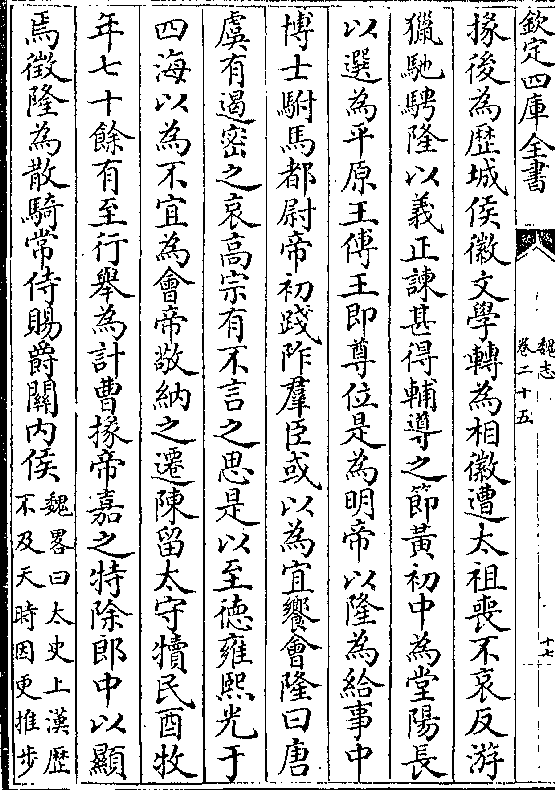 欽定四庫全書
魏志
卷二十五
十七
掾後為歴城侯徽文學轉為相徽遭太祖喪不哀反游
獵馳騁隆以義正諫甚得輔導之節黄初中為堂陽長
以選為平原王傅王即尊位是為明帝以隆為給事中
博士駙馬都尉帝初踐阼羣臣或以為宜饗會隆曰唐
虞有遏密之哀高宗有不言之思是以至徳雍熙光于
四海以為不宜為會帝敬納之遷陳留太守犢民酉牧
年七十餘有至行舉為計曹掾帝嘉之特除郎中以顯
焉徵隆為散騎常侍賜爵關内侯
魏畧曰太史上漢歴
不及天時因更推步